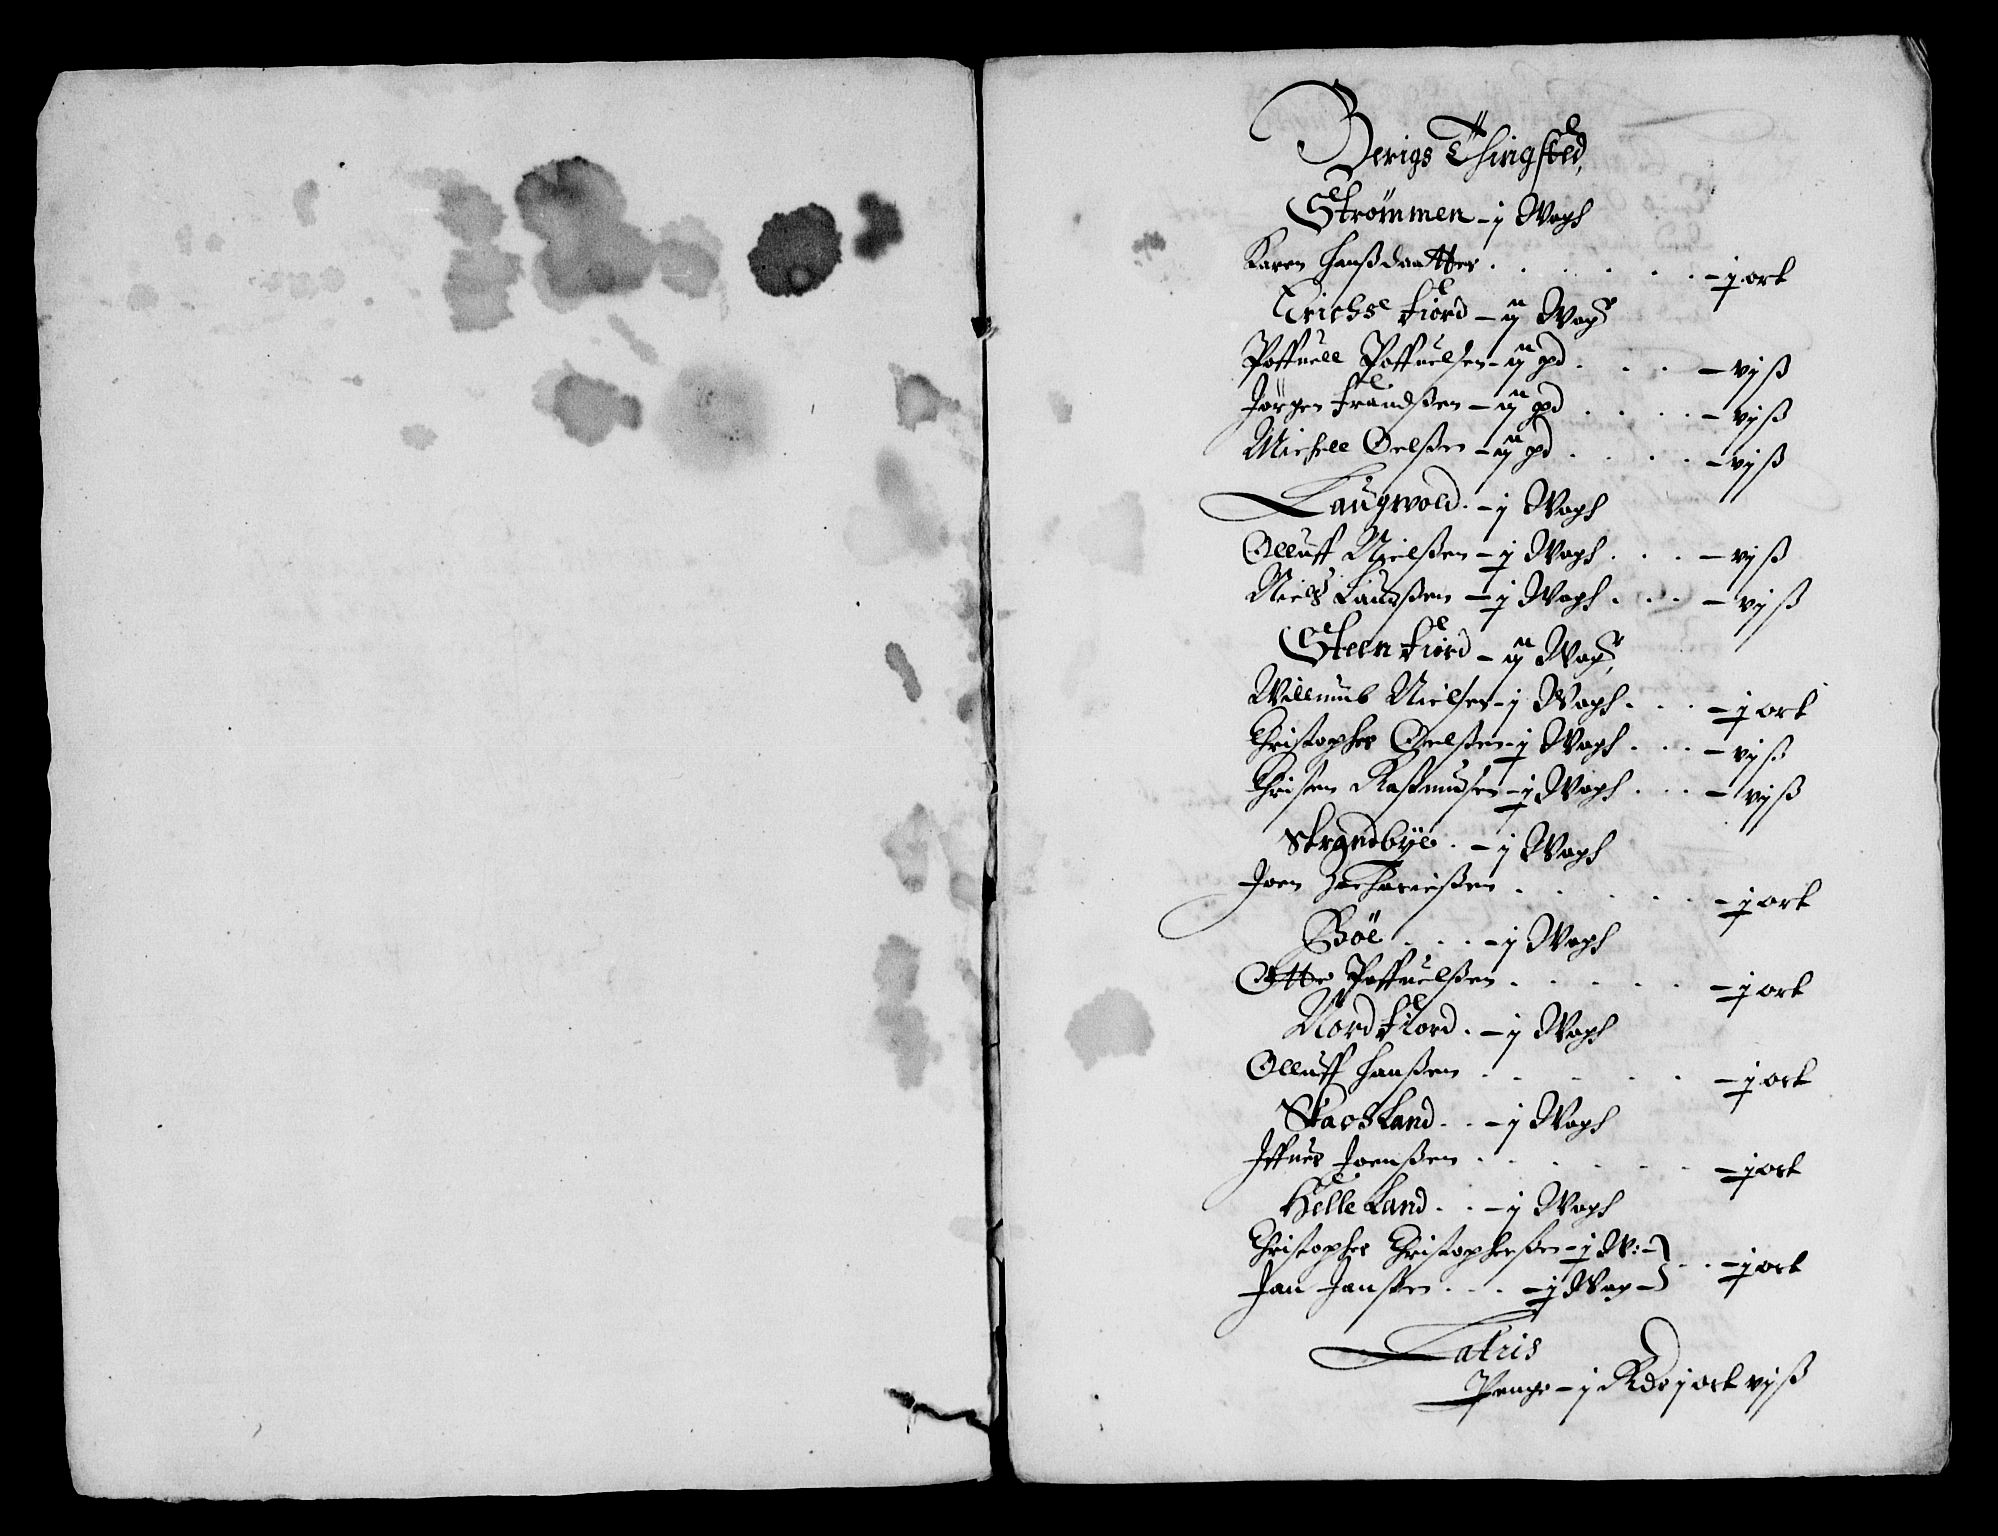 Berigs Thingsted,
Strømmen - j Wogh
Karen Hanßdaatter . . . . . . - j ort
Erichsfiord - ij Wog
Poffuell Poffuelsen - ij pd . . . - vjß
Jørgen Frandßen - ij pd . . . . - vjß
Michell Oelßen - ij pd . . . . - vjß
Laugwold . - j Wogh
Olluff Nielßen - j Wogh . . . - vjß
Niels Laurßen - j Wogh . . . - vjß
Steenfiord - ij Wog,
Willumb Nielsen - j Wogh . . . - j ort
Christopher Oelßen - j Wogh . . . - vjß
Christen Rasmusen - j Wogh . . . - vjß
Strandbÿe . - j Wogh
Joen Zachariæßen . . . . . - j ort
Böe . . . - j Wogh
Otte Poffuelßen . . . . . - j ort
Nordfiord . - j Wogh
Olluff Hanßen . . . . . - j ort
Skarsland . . - j Wogh
Iffuer Joenßen . . . . . . - j ort
Helleland . . - j Wogh
Christopher Christopherßen - j W: -
Jan Janßen . . . - j Wog - . . - j ort
Lateris
Penge - j Rdr j ort vjß